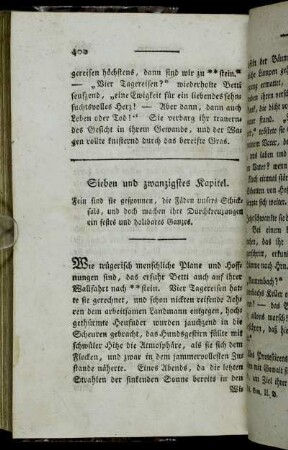 400
gereisen höchstens, dann sind wir zu **stein."
— „Vier Tagereisen?" wiederholte Betti
seufzend, „eine Ewigkeit für ein liebendes sehn-
suchtsvolles Herz! — Aber dann, dann auch
Leben oder Tod!" Sie verbarg ihr trauern-
des Gesicht in ihrem Gewande, und der Wa-
gen rollte knisternd durch das bereifte Gras.
Sieben und zwanzigstes Kapitel.
Fein sind sie gesponnen, die Fäden unsers Schick-
sals, und doch machen ihre Durchkreuzungen
ein festes und haltbares Ganzes.
Wie trügerisch menschliche Plane und Hoff-
nungen sind, das erfuhr Betti auch auf ihrer
Wallfahrt nach **stein. Vier Tagereisen hat-
te sie gerechnet, und schon nickten reifende Aeh-
ren dem arbeitsamen Landmann entgegen, hoch-
gethürmte Heufuder wurden jauchzend in die
Scheuren gebracht, das Hundsgestirn füllte mit
schwüler Hitze die Atmosphäre, als sie sich dem
Flecken, und zwar in dem jammervollesten Zu-
stande näherte. Eines Abends, da die letzten
Strahlen der sinkenden Sonne bereits in den
Wis